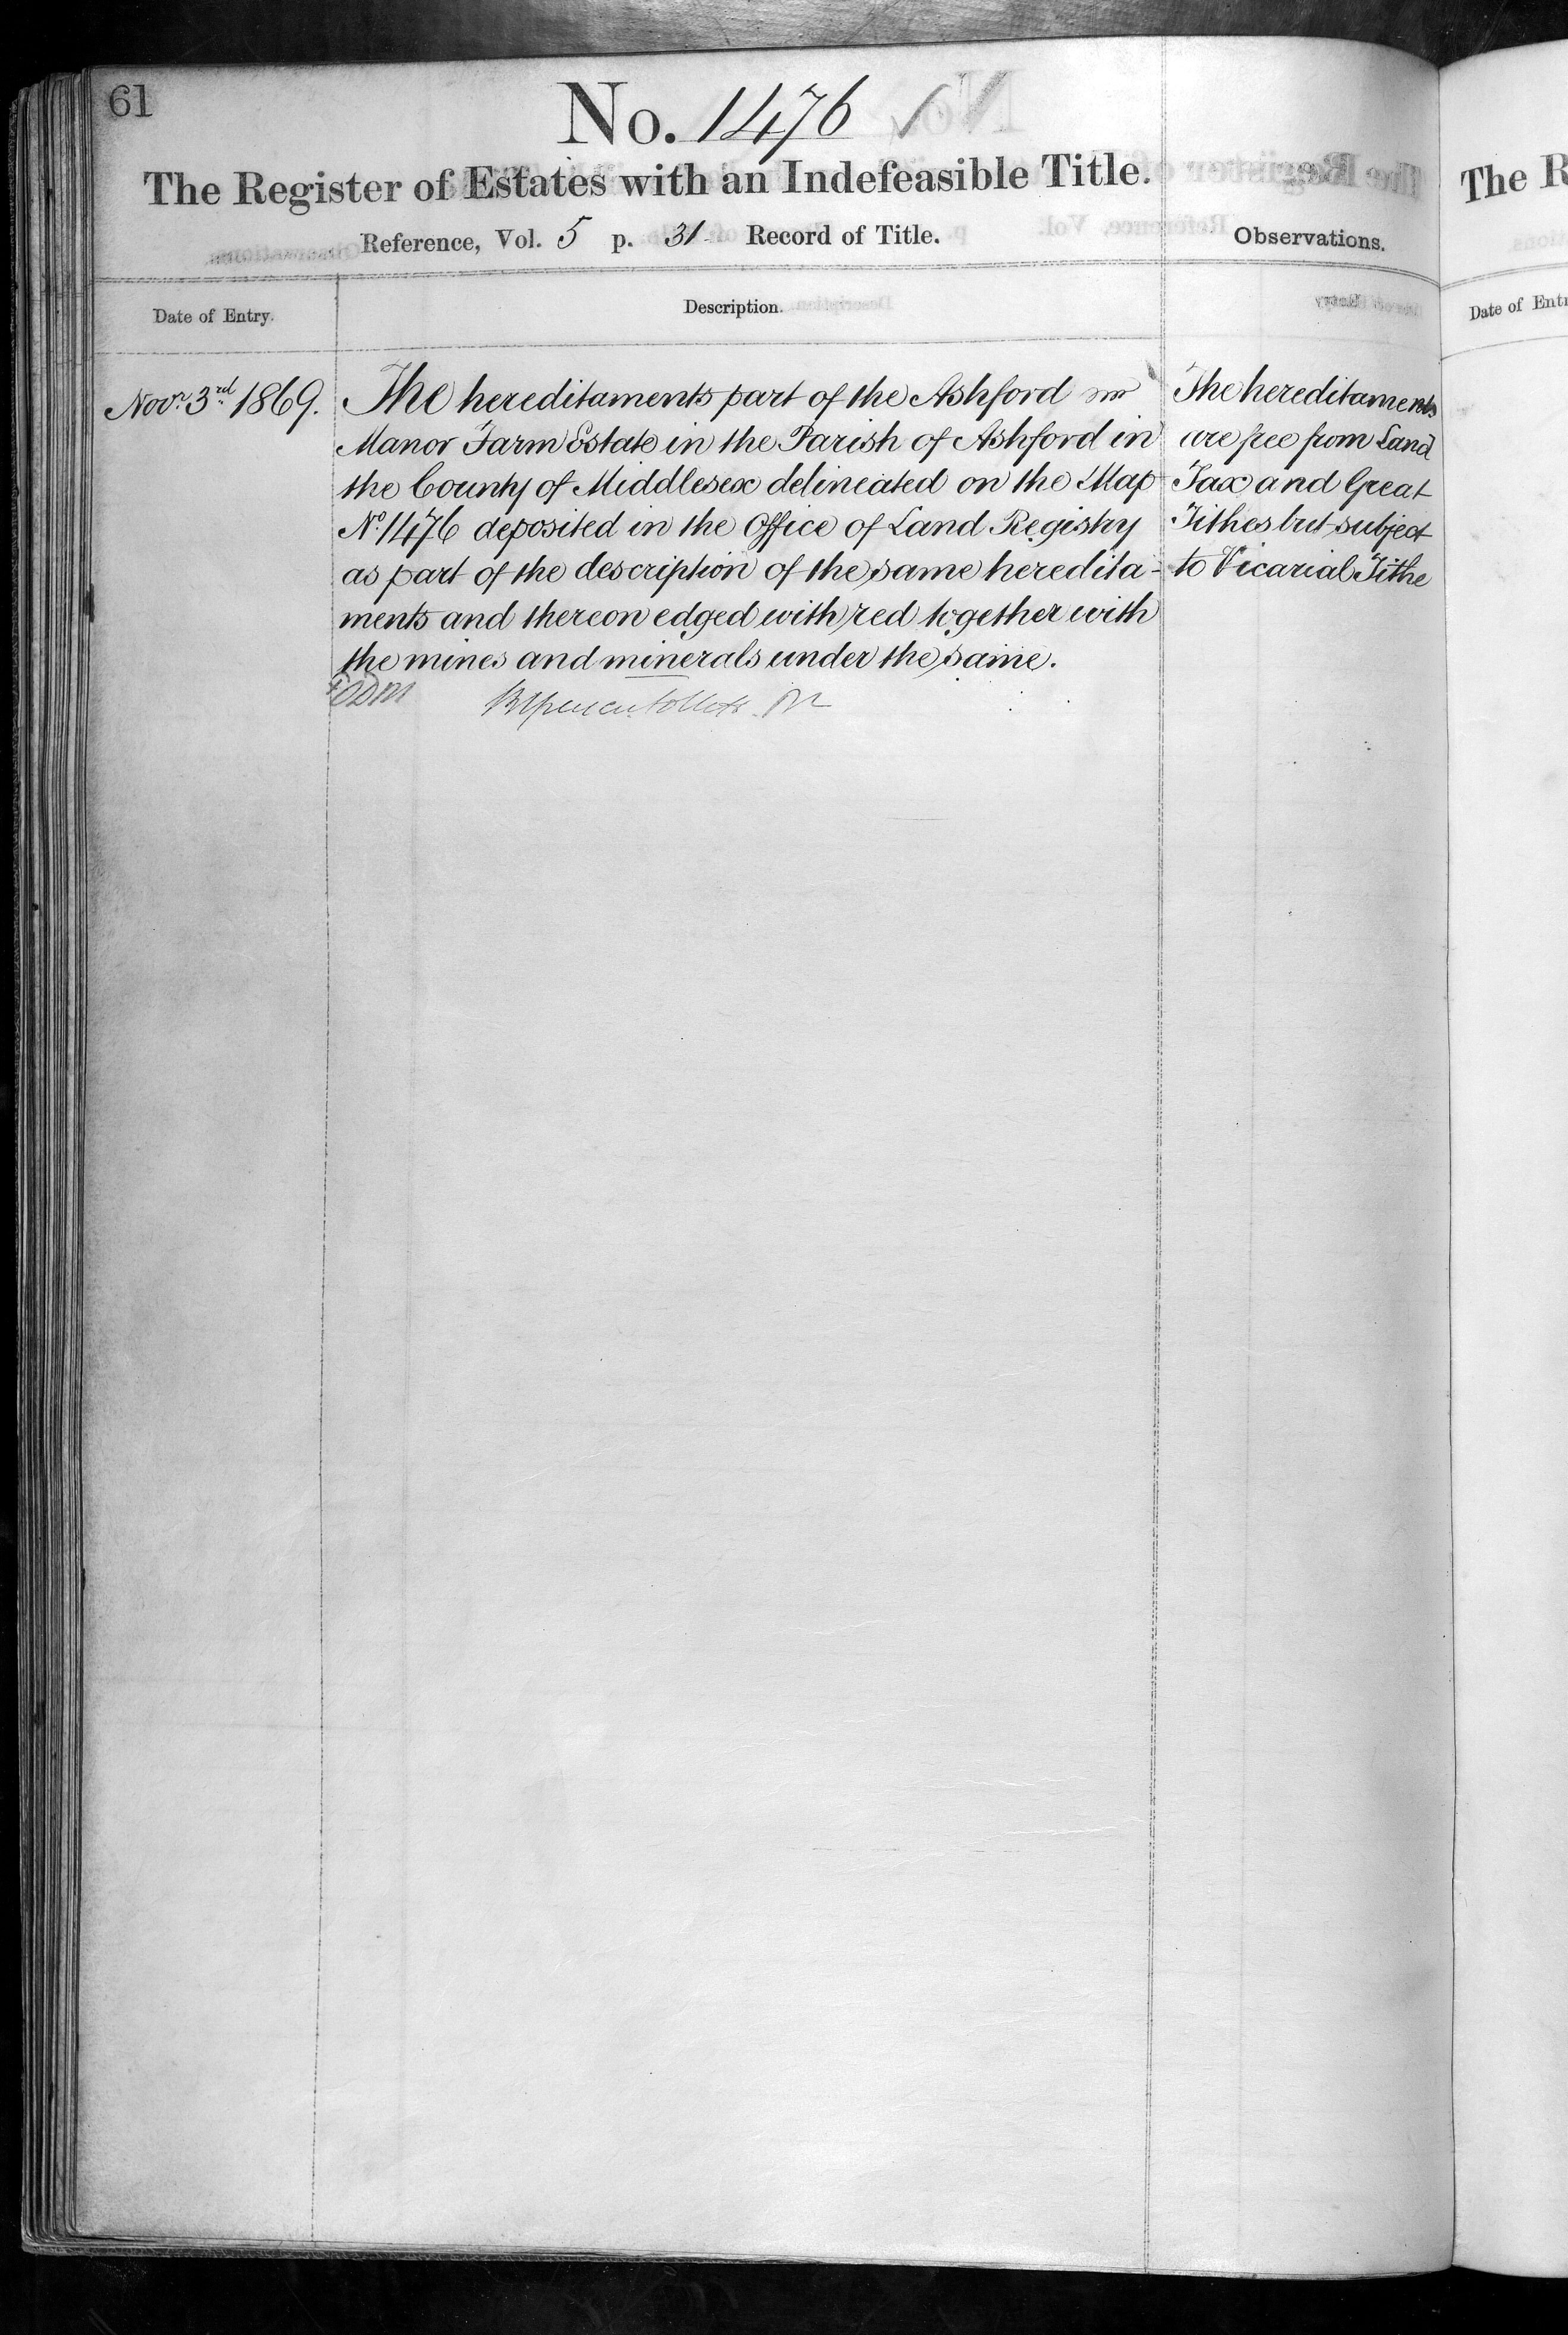 61
No. 1476
The Register of Estates with an Indefeasible Title.
Reference, Vol. 5 p. 31 Record of Title.
Observations.
Date of Entry.
Description.
Novr. 3rd 1869.
The hereditaments part of the Ashford
Manor Farm Estate in the Parish of Ashford in
the County of Middlesex delineated on the Map
No. 1476 deposited in the Office of Land Registry
as part of the description of the same heredita-
ments and thereon edged with red together with
the mines and minerals under the same.
The hereditaments
are free from Land
Tax and Great
Tithes but subject
to Vicarial Tithe
The R
Date of Ent